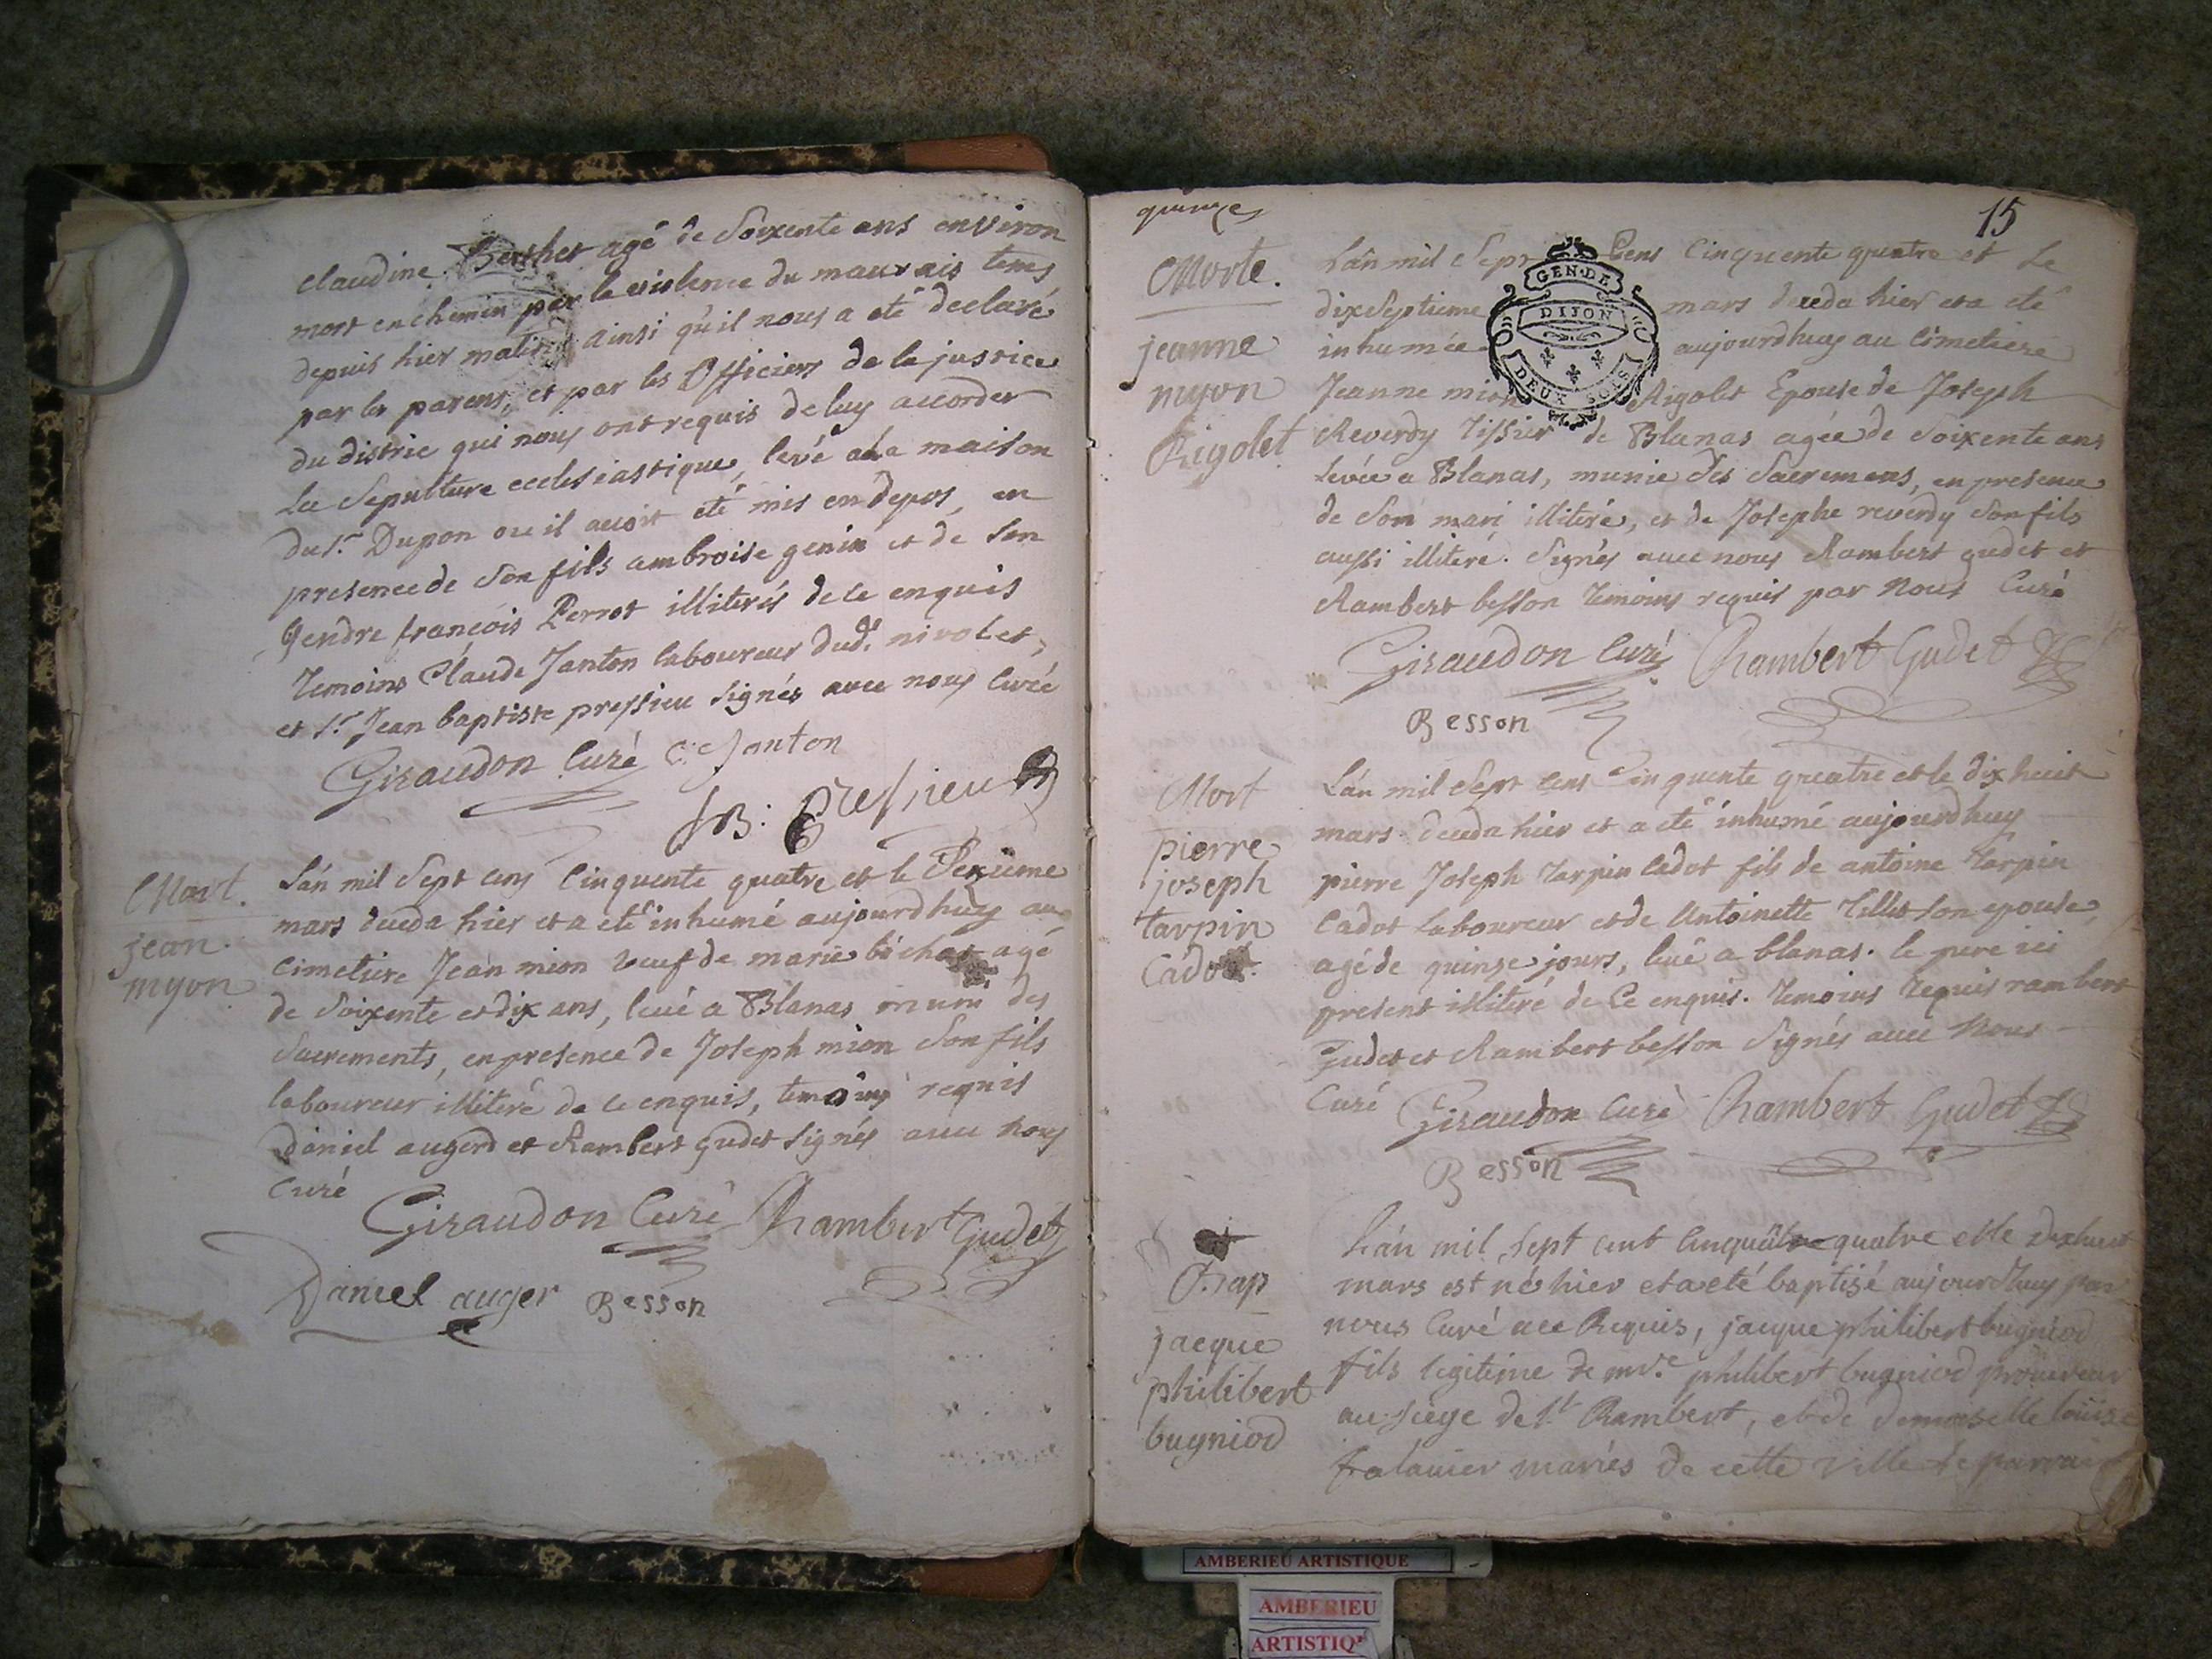 claudine Berthet agé de Soixente ans environ
mort en chemin par la violence du mauvais tems
depuis hier matin ainsi qu'il nous a eté declaré
par les parens, et par les Officiers de la justice
du distric qui nous ont requis de luy accorder
la Sepulture ecclesiastique, levé a La maison
du Sr. Dupon ou il avoit eté mis en depos, en
presence de Son fils ambroise genin et de Son
gendre françois Perrot illiterés de ce enquis
Temoins Claude Janton laboureur dud. nivolet,
et Sr. Jean baptiste pressieu signés avec nous Curé
Giraudon Curé C Janton
JB: Pressieu
Mort.
jean
myon
L'an mil Sept cens Cinquente quatre et le Sezieme
mars deceda hier et a eté inhumé aujourdhuy au
Cimetiere Jean mion veuf de marie bichat agé
de Soixente et dix ans, levé a Blanas muni des
Sacrements, en presence de Joseph mion Son fils
laboureur illiteré de ce enquis, temoins requis
daniel augerd et Rambert gudet signés avec nous
Curé
Giraudon Curé Rambert Gudet
Daniel auger Besson
quinze
15
Morte.
jeanne
myon
Rigolet
GEN. DE
DIJON
DEUX SOLS
L'an mil Sept Cens Cinquente quatre et le
dix Septieme mars deceda hier et a eté
inhumée aujourdhuy au Cimetiere
Jeanne mion Rigolet Epouse de Joseph
Reverdy Tissier de Blanas agée de Soixente ans
Levée a Blanas, munie des Sacremens, en presence
de Son mari illiteré, et de Josephe reverdy Son fils
aussi illiteré. Signés avec nous Rambert gudet et
Rambert besson Temoins requis par Nous Curé
Giraudon Curé Rambert Gudet
Besson
Mort
pierre
joseph
tarpin
Cadot
L'an mil Sept Cens Cinquente quatre et le dix huit
mars deceda hier et a eté inhumé aujourdhuy
pierre Joseph Tarpin Cadot fils de antoine Tarpin
Cadot Laboureur et de Antoinette Tillet Son epouse,
agé de quinze jours, levé a blanas. le pere ici
present illiteré de Ce enquis. Temoins Requis rambert
Gudet et Rambert besson Signés avec Nous
Curé Giraudon Curé Rambert Gudet
Besson
Bap
jacque
philibert
bugniod
L'an mil Sept cent Cinquante quatre et le dixhuit
mars est né hier et a eté baptisé aujourdhuy par
nous Curé a ce Requis, jacque philibert bugniod
fils legitime de mre. philibert bugniod procureur
au siege de St Rambert, et de demoiselle loüise
falavier mariés de cette ville le parrain
AMBERIEU ARTISTIQUE
AMBERIEU
ARTISTIQ